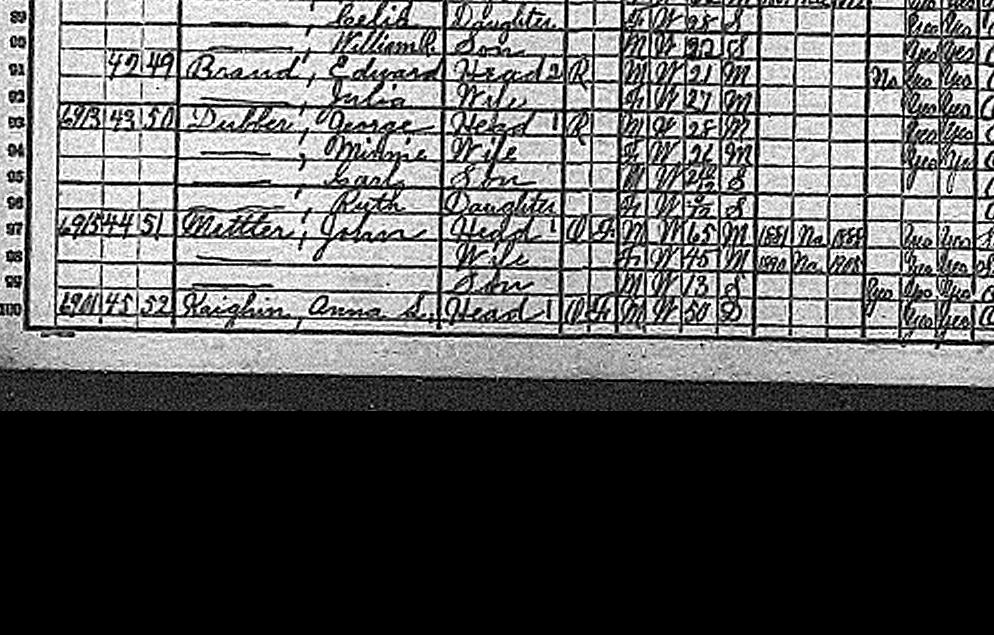 89 Celia Daughter F W 28 S Yes Yes
90 William R. Son M W 22 S Yes Yes
91 42 49 Brand, Edward Head 2 R M W 21 M No Yes Yes
92 Julia Wife F W 27 M Yes Yes
93 6913 43 50 Dubber, George Head 1 R M W 28 M Yes Yes
94 Minnie Wife F W 26 M Yes Yes
95 Son M W S
96 Ruth Daughter F W S
97 6915 44 51 Mettler, John Head 1 O F M W 65 M 1881 Na 1888 Yes Yes
98 Wife F W 45 M 1890 Na Yes Yes
99 Son M W 13 S Yes Yes Yes
100 6911 45 52 Kaighin, Anna S. Head 1 O F M W 50 D Yes Yes